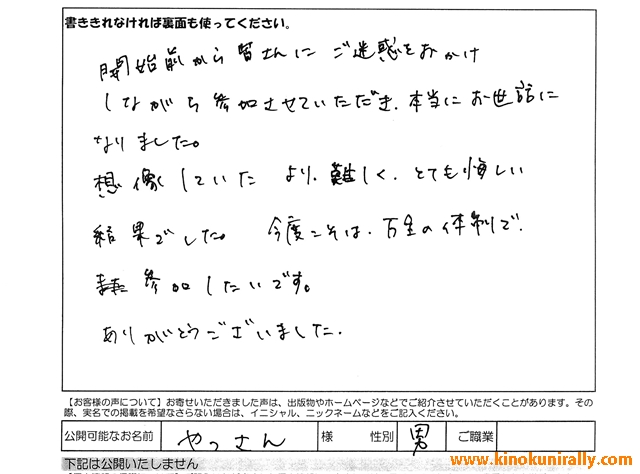 書ききれなければ裏面も使ってください。
開始前から皆さんにご迷惑をおかけ
しながら参加させていただき、本当にお世話に
なりました。
想像していたより、難しく、とても悔しい
結果でした。今度こそは、万全の体制で、
また参加したいです。
ありがとうございました。
【お客様の声について】お寄せいただきました声は、出版物やホームページなどでご紹介させていただくことがあります。その
際、実名での掲載を希望なさらない場合は、イニシャル、ニックネームなどをご記入ください。
公開可能なお名前 やっさん 様 性別 男 ご職業
下記は公開いたしません
www.kinokunirally.com